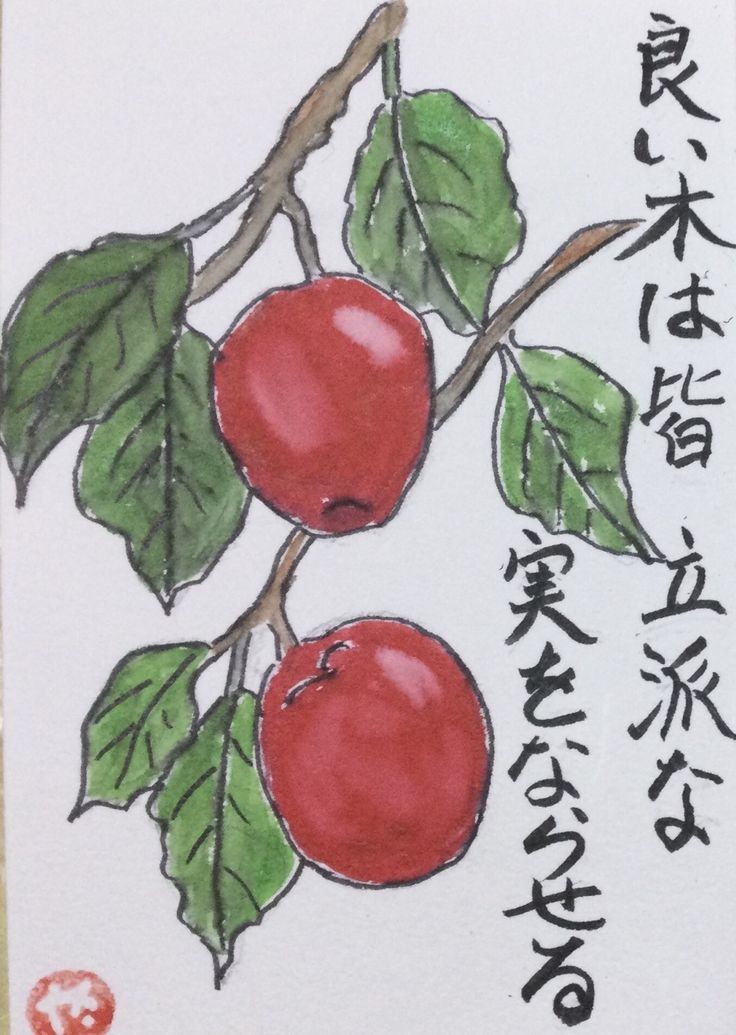 良い木は皆 立派な
実をならせる